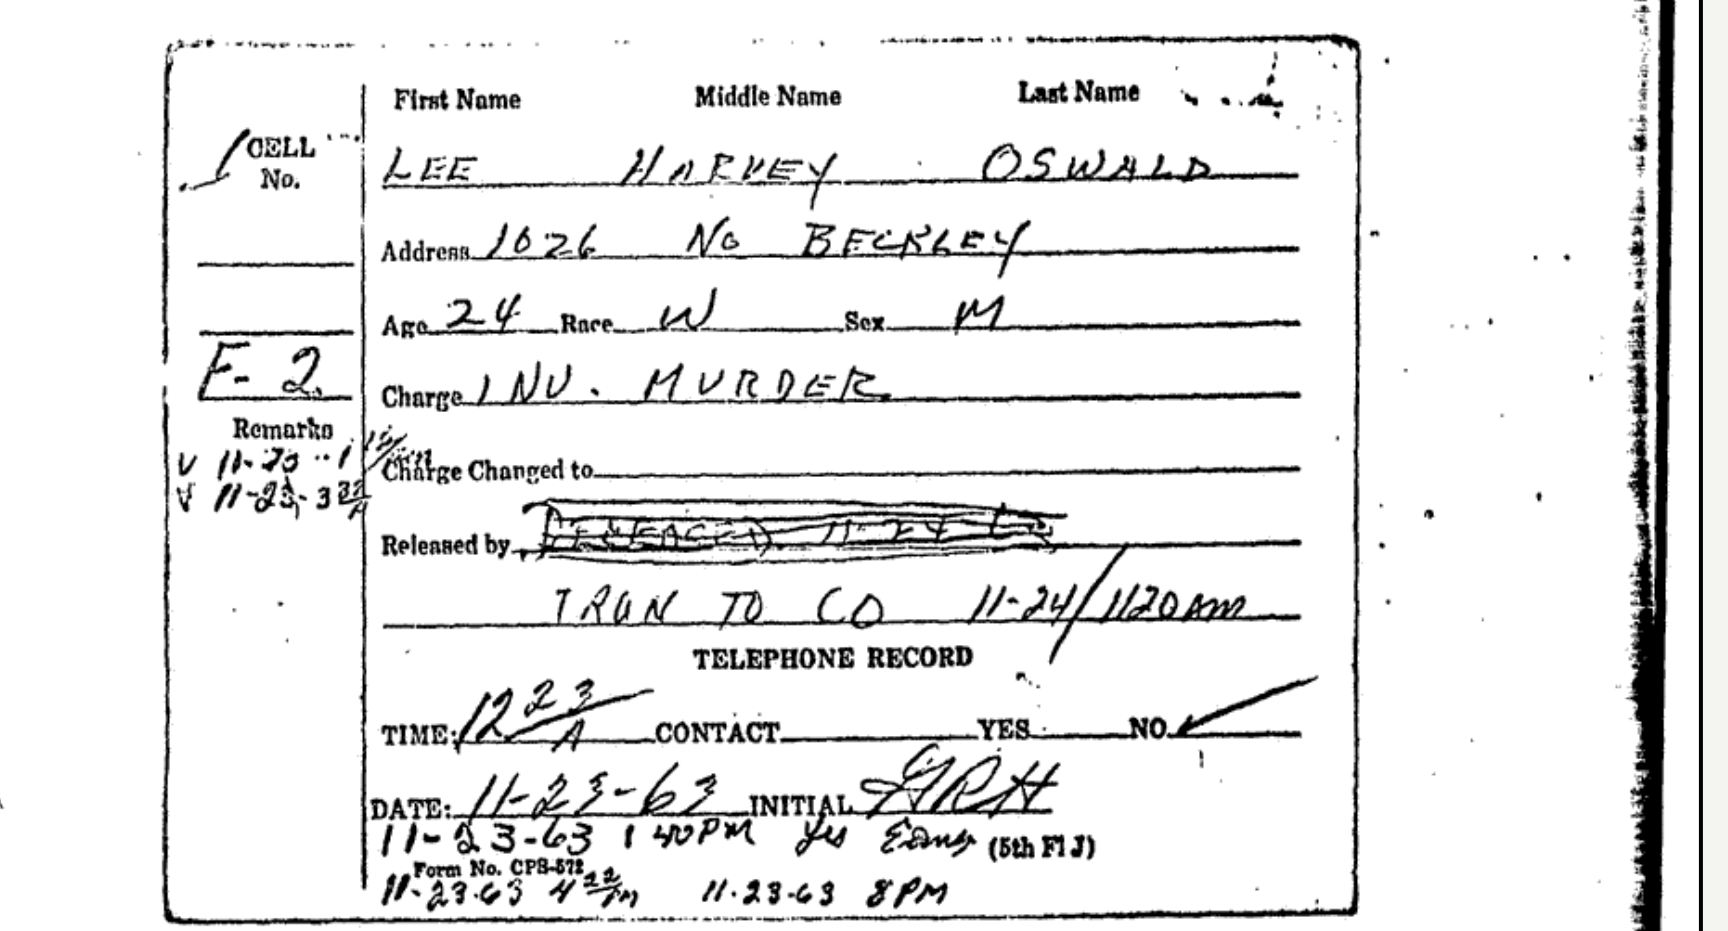 First Name Middle Name Last Name
CELL No.
LEE HARVEY OSWALD
Address 1026 No BECKLEY
Age 24 Race W Sex M
F- 2
Charge INV. MURDER
Remarks
11-23
Charge Changed to
11-23-3
Released by RELEASED 11-24
TRAN TO CO 11-24/1120 AM
TELEPHONE RECORD
TIME: 12 23 A CONTACT YES NO ✓
DATE: 11-23-63 INITIAL
11-23-63 1 40 PM Yes (5th Fl J)
Form No. CPS-572
11-23-63 4 22 PM 11-23-63 8 PM